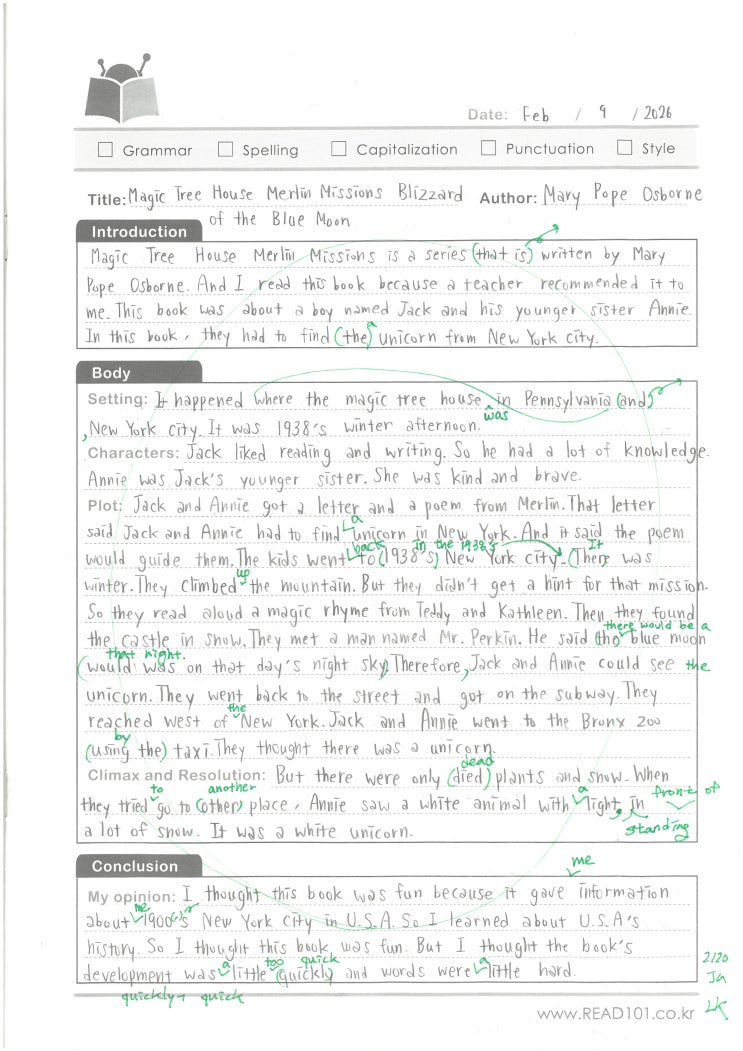 Date: Feb / 9 / 2026
Grammar Spelling Capitalization Punctuation Style
Title: Magic Tree House Merlin Missions Blizzard Author: Mary Pope Osborne
of the Blue Moon
Introduction
Magic Tree House Merlin Missions is a series (that is) written by Mary
Pope Osborne. And I read this book because a teacher recommended it to
me. This book was about a boy named Jack and his younger sister Annie.
a
In this book, they had to find (the) unicorn from New York city.
Body
Setting: It happened where the magic tree house in Pennsylvania (and)
was
, New York city. It was 1938's winter afternoon.
Characters: Jack liked reading and writing. So he had a lot of knowledge.
Annie was Jack's younger sister. She was kind and brave.
Plot: Jack and Annie got a letter and a poem from Merlin. That letter
a
said Jack and Annie had to find unicorn in New York. And it said the poem
back in the 1938's It
would guide them. The kids went to (1938's) New York city. (There was
up
winter. They climbed the mountain. But they didn't get a hint for that mission.
So they read aloud a magic rhyme from Teddy and Kathleen. Then they found
there would be a
the castle in snow. They met a man named Mr. Perkin. He said (the) blue moon
that night.
(would was on that day's night sky). Therefore, Jack and Annie could see the
unicorn. They went back to the street and got on the subway. They
the
reached west of New York. Jack and Annie went to the Bronx zoo
by
(using the) taxi. They thought there was a unicorn.
dead
Climax and Resolution: But there were only (died) plants and snow. When
to another a front of
they tried go to (other) place, Annie saw a white animal with light, in
standing
a lot of snow. It was a white unicorn.
Conclusion
me
My opinion: I thought this book was fun because it gave information
me
about 1900(')s New York city in U.S.A. So I learned about U.S.A's
history. So I thought this book was fun. But I thought the book's
a too quick a
development was little (quickly) and words were little hard.
quickly → quick
2120
JH
LK
www.READ101.co.kr